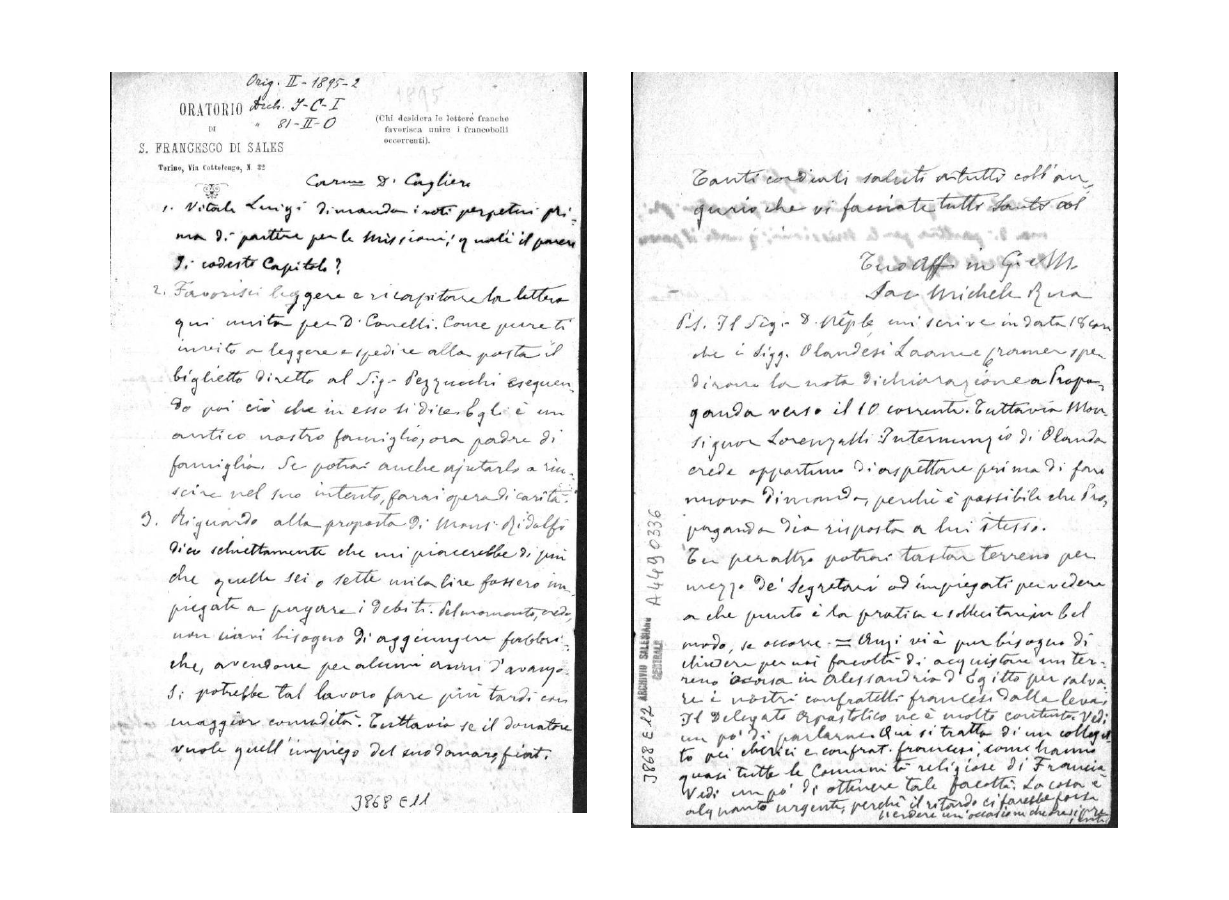 Orig. II - 1895 - 2
1895
ORATORIO Arch. 9-C-I
DI " 81-II-O
S. FRANCESCO DI SALES
Torino, Via Cottolengo, N 32
(Chi desidera le lettere franche
favorisca unire i francobolli
occorrenti).
Carmo D. Cagliero
1. Vitale Luigi dimanda i voti perpetui pri-
ma di partire per le Missioni; qual è il parere
di codesto Capitolo?
2. Favorisci leggere e ricapitare la lettera
qui unita per D. Canelli. Come pure ti
invito a leggere e spedire alla posta il
biglietto diretto al Sig. Pezzucchi eseguen-
do poi ciò che in esso si dice. Egli è un
antico nostro famiglio, ora padre di
famiglia. Se potrai anche ajutarlo a riu-
scire nel suo intento, farai opera di carità.
3. Riguardo alla proposta di Mons. Ridolfi
dico schiettamente che mi piacerebbe di più
che quelle sei o sette mila lire fossero im-
piegate a pagare i debiti. Pel momento, credo,
non siavi bisogno di aggiungere fabbri-
che, avendone per alcuni anni d'avanzo.
Si potrebbe tal lavoro fare più tardi con
maggior comodità. Tuttavia se il donatore
vuole quell'impiego del suo danaro, fiat.
3868 E11
Tanti cordiali saluti a tutti coll'au-
gurio che vi facciate tutti santi col
Tuo Aff. in G. e M.
Sac. Michele Rua
P.S. Il Sig. D. mi scrive in data 18 corr.
che i Sigg. Olandesi Laane e spe-
dirono la nota dichiarazione a Propa-
ganda verso il 10 corrente. Tuttavia Mon-
signor Lorenzelli Internunzio di Olanda
crede opportuno di aspettare prima di fare
nuova dimanda, perchè è possibile che Pro-
paganda dia risposta a lui stesso.
Tu per altro potrai tastar terreno per
mezzo de' Segretari od impiegati per vedere
a che punto è la pratica e sollecitare in bel
modo, se occorre. = Anzi vi è pur bisogno di
chiedere per noi facoltà di acquistare un ter-
reno o casa in Alessandria d'Egitto per salva-
re i nostri confratelli francesi dalla leva.
Il Delegato Apostolico ne è molto contento. Vedi
un po' di parlarne. Qui si tratta di un
pei chierici e confrat. francesi, come hanno
quasi tutte le Comunità religiose di Francia.
Vedi un po' di ottenere tale facoltà. La cosa è
alquanto urgente, perchè il ritardo ci farebbe forse
perdere un'occasione che ora si pre-
senta
3868 E12
ARCHIVIO SALESIANO
CENTRALE
A4490336